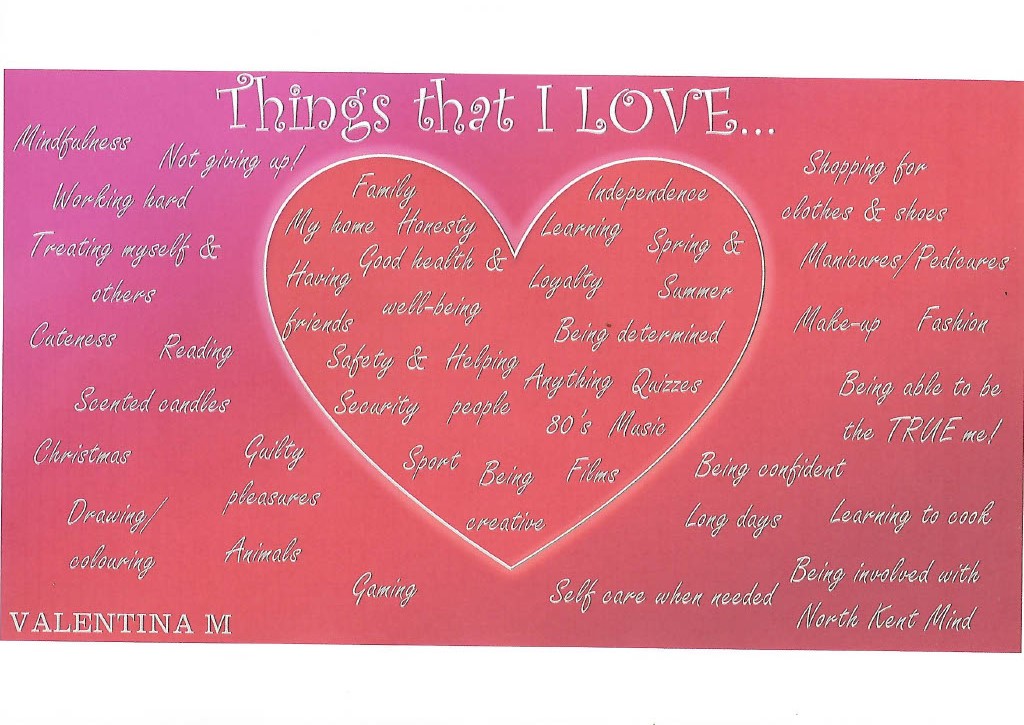 Things that I LOVE...
Mindfulness
Not giving up!
Working hard
Treating myself &
others
Cuteness
Reading
Scented candles
Christmas
Guilty
pleasures
Drawing/
colouring
Animals
Gaming
Family
My home
Honesty
Having
friends
Good health &
well-being
Safety &
Security
Helping
people
Sport
Being
creative
Independence
Learning
Spring &
Summer
Loyalty
Being determined
Anything
80's
Quizzes
Music
Films
Shopping for
clothes & shoes
Manicures/Pedicures
Make-up
Fashion
Being able to be
the TRUE me!
Being confident
Long days
Learning to cook
Self care when needed
Being involved with
North Kent Mind
VALENTINA M